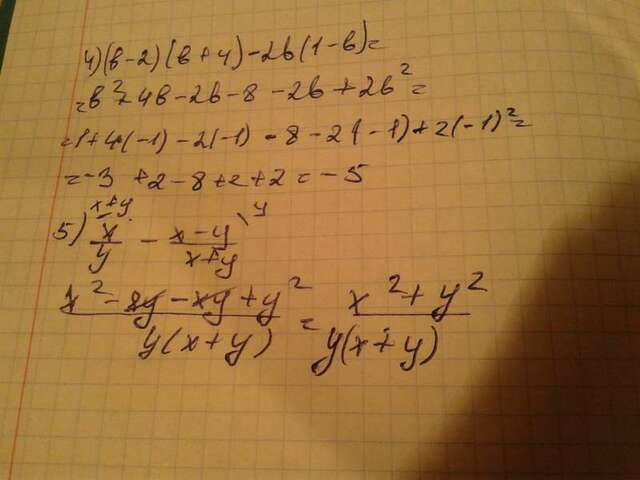 4) (в-2)(в+4)-2в(1-в)=
=в²+4в-2в-8-2в+2в²=
=1+4·(-1)-2(-1)-8-2(-1)+2(-1)²=
=-3+2-8+2+2=-5
5) x/y - (x-y)/(x+y)
x+y y
(x²-xy-xy+y²)/(y(x+y)) = (x²+y²)/(y(x+y))